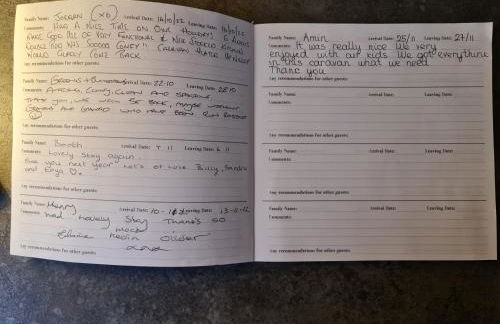 Family Name: (X6) Arrival Date: 14/10/22 Leaving Date: 16/10/22
Comments: HAD A NICE TIME ON OUR HOLIDAY! & ALSO
MAKE GOOD USE OF VERY FUNCTIONAL & NICE STOCKED KITCHEN
COMFY" CARAVAN
WOULD COME BACK.
Any recommendations for other guests:
Family Name: Arrival Date: 22-10 Leaving Date: 28-10
Comments: COMFY, CLEAN AND SPACIOUS,
THANK YOU, WE WILL BE BACK, MAYBE WITHOUT
GRANDAD WHO HAVE BEEN RUN RAGGED
Any recommendations for other guests:
Family Name: Booth Arrival Date: 11 Leaving Date: 6 11
Comments: Lovely stay again.
See you next year. Lots of Love. Billy, Sandra
and Enya
Any recommendations for other guests:
Family Name: Henry Arrival Date: 10- Leaving Date: 13-11-22
Comments: had lovely Stay Thank's so
much
Elaine Kevin Oliver
xxx
Any recommendations for other guests:
Family Name: Amin Arrival Date: 25/11 Leaving Date: 27/11
Comments: It was really nice We very
enjoyed with our kids. We got everything
in this caravan what we need.
Thank you
Any recommendations for other guests:
Family Name: Arrival Date: Leaving Date:
Comments:
Any recommendations for other guests:
Family Name: Arrival Date: Leaving Date:
Comments:
Any recommendations for other guests:
Family Name: Arrival Date: Leaving Date:
Comments:
Any recommendations for other guests: